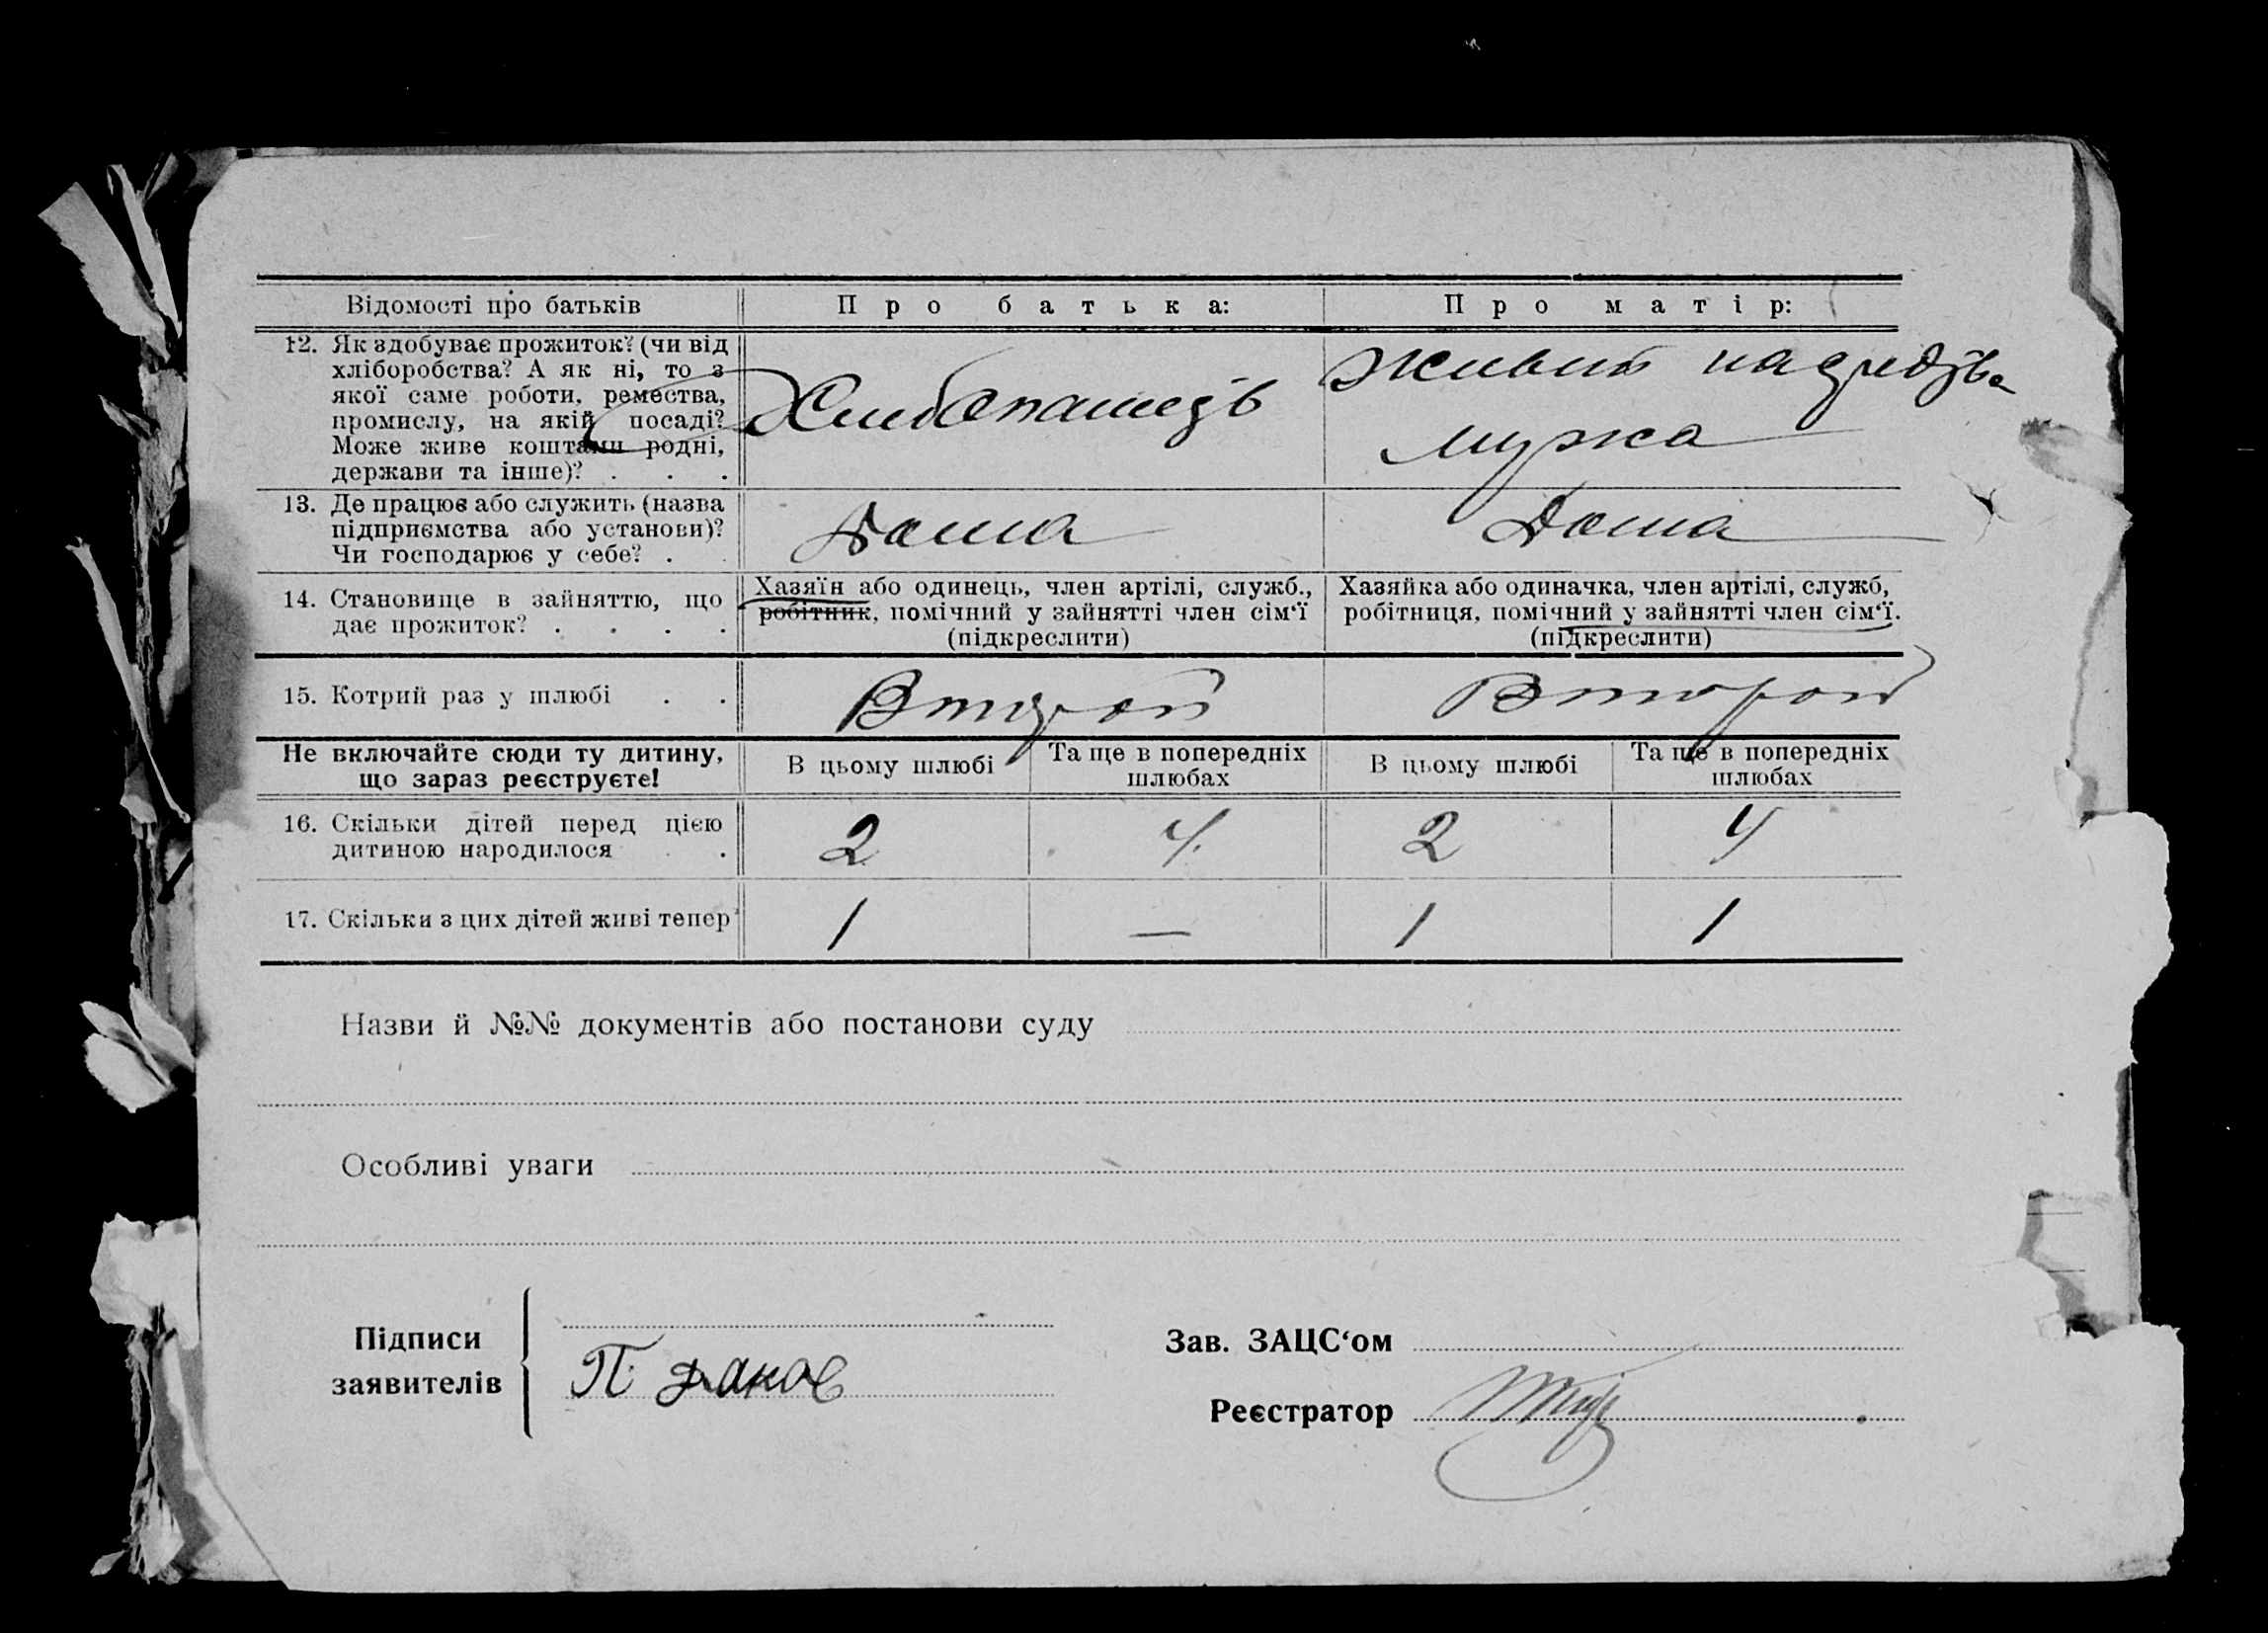 Відомості про батьків
Про батька:
Про матір:
12. Як здобуває прожиток? (чи від
хліборобства? А як ні, то з
якої саме роботи, ремества,
промислу, на якій посаді?
Може живе коштами родні,
держави та інше)? . . .
Хлебопашец
Живит на средства
мужа
13. Де працює або служить (назва
підприємства або установи)?
Чи господарює у себе? . .
Дома
Дома
14. Становище в зайняттю, що
дає прожиток? . . . .
Хазяїн або одинець, член артілі, служб.,
робітник, помічний у зайнятті член сім‘ї
(підкреслити)
Хазяйка або одиначка, член артілі, служб,
робітниця, помічний у зайнятті член сім‘ї.
(підкреслити)
15. Котрий раз у шлюбі . .
Второй
Второй
Не включайте сюди ту дитину,
що зараз реєструєте!
В цьому шлюбі
Та ще в попередніх
шлюбах
В цьому шлюбі
Та ще в попередніх
шлюбах
16. Скільки дітей перед цією
дитиною народилося . .
2
4
2
4
17. Скільки з цих дітей живі тепер
1
—
1
1
Назви й №№ документів або постанови суду
Особливі уваги
Підписи
заявителів
П
Зав. ЗАЦС‘ом
Реєстратор